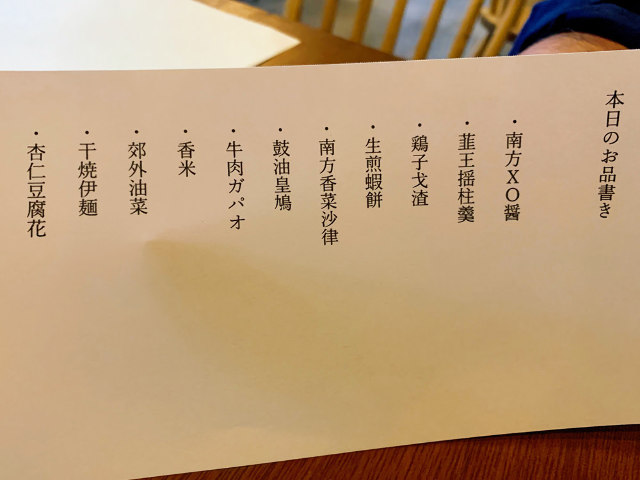 本日のお品書き
・南方XO醤
・韮王揺柱羹
・鶏子戈渣
・生煎蝦餅
・南方香菜沙律
・鼓油皇鳩
・牛肉ガパオ
・香米
・郊外油菜
・干焼伊麺
・杏仁豆腐花